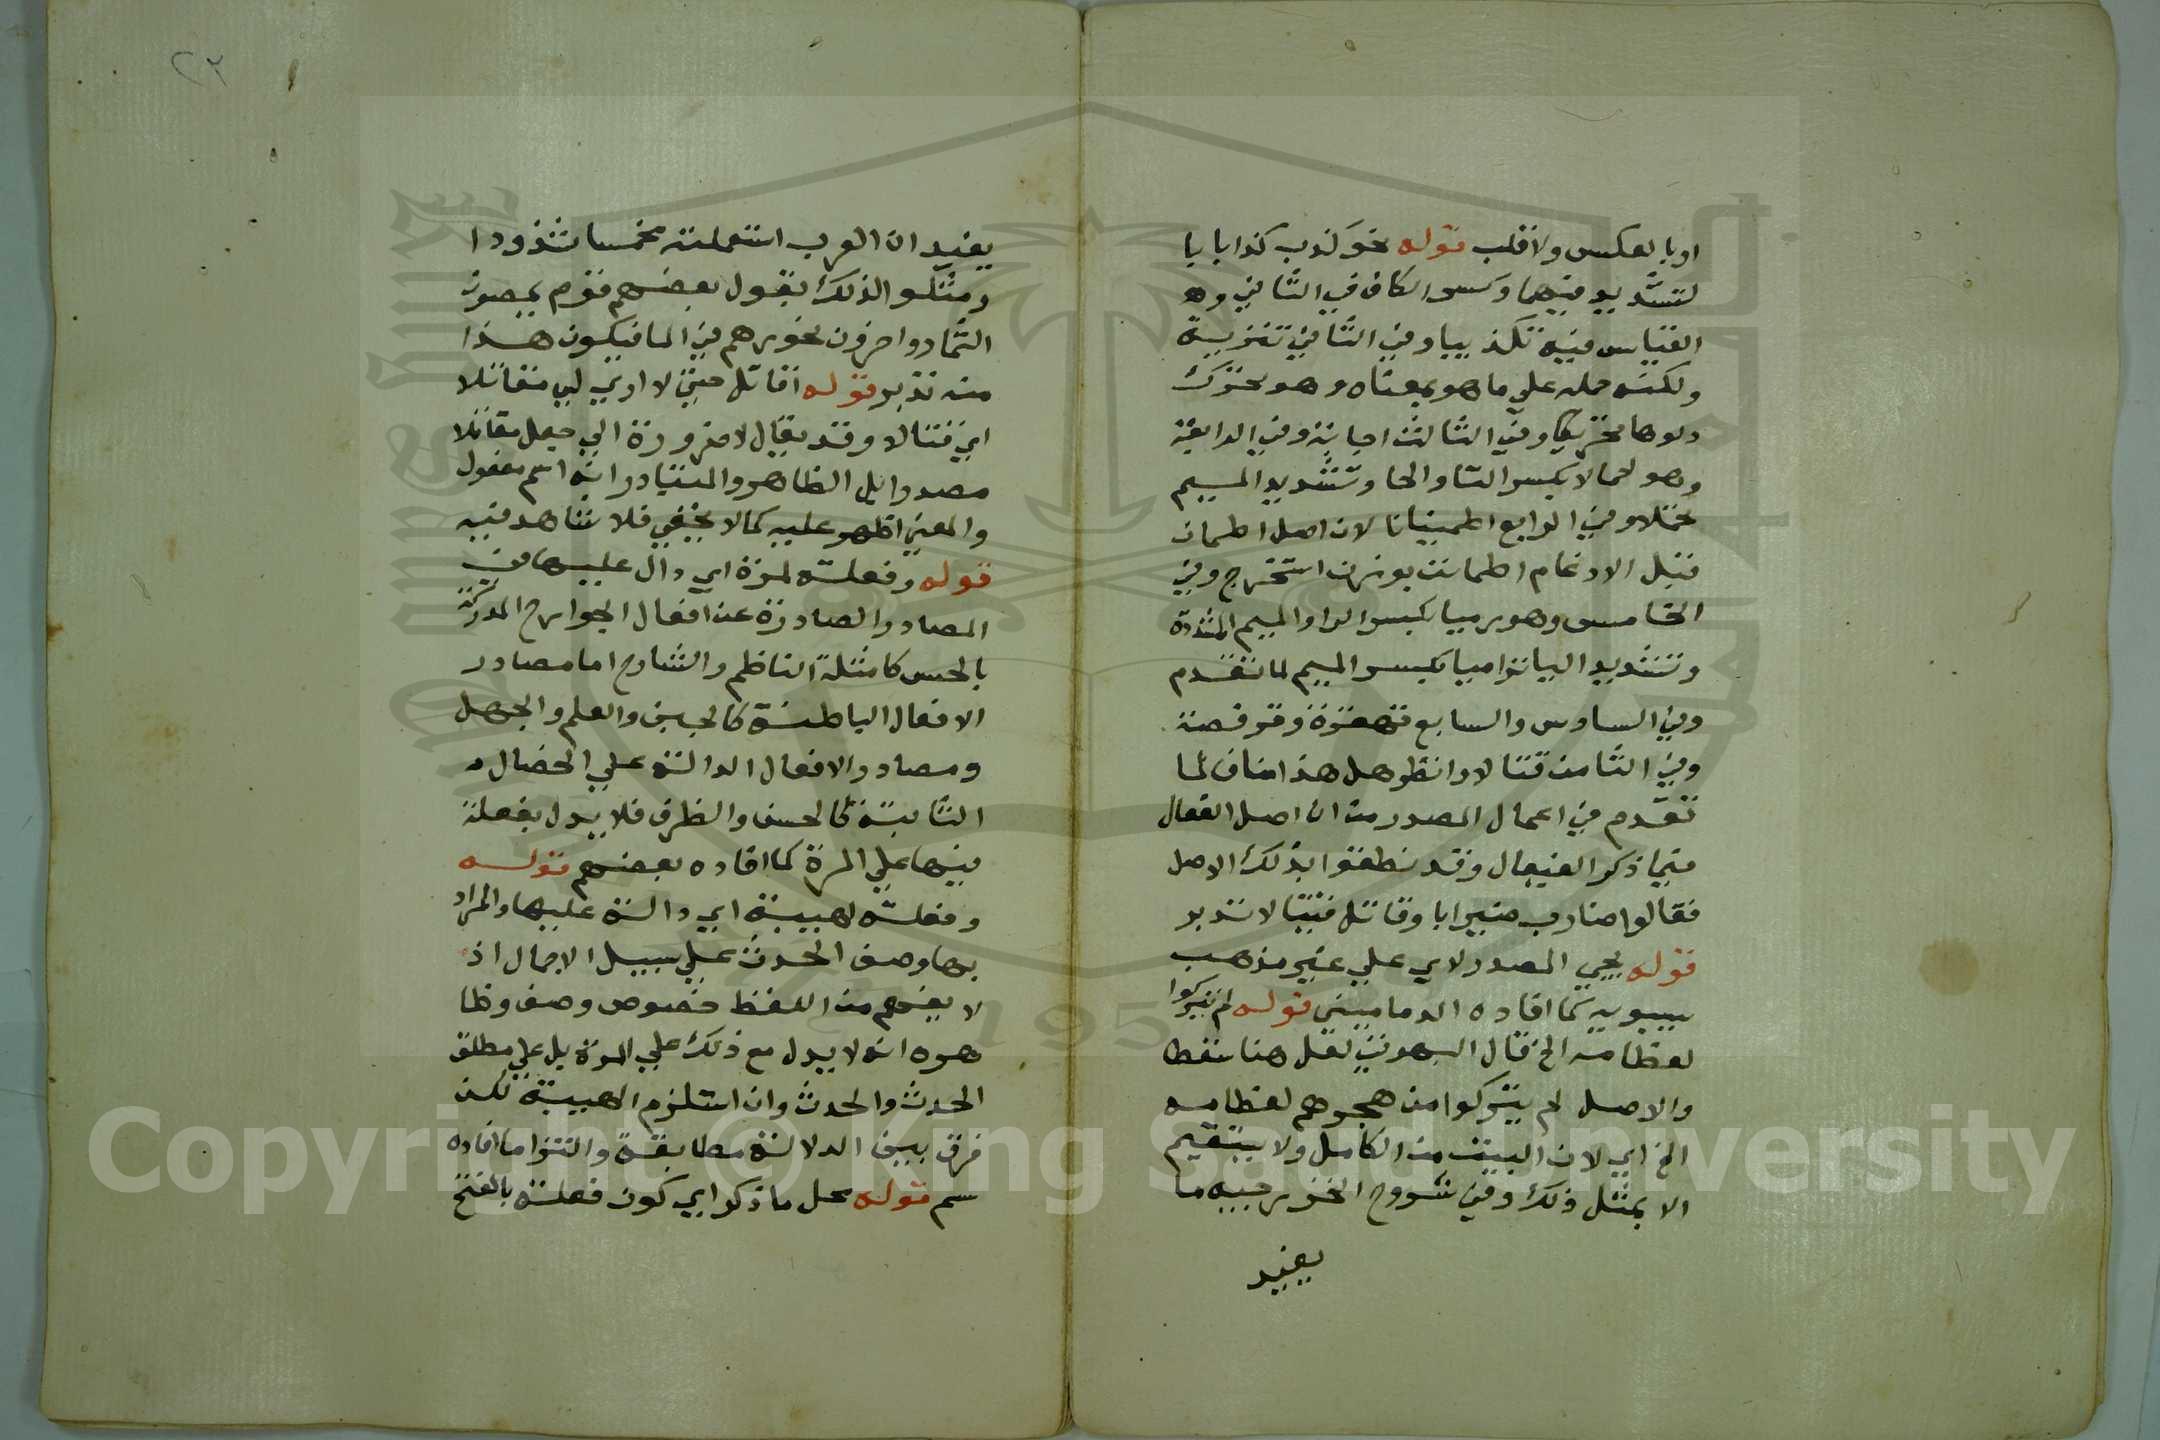 او بالعكس ولا قلب قوله نحو كذب كذابا با
لتشديد فيهما وكسر الكاف في الثاني وهو
القياس فيه تكذيبا وفي الثاني تنزية
ولكنه حمله على ما هو بمعناه وهو يحرك
دلوها تحريكا وفي الثالث اجابة وفي الرابعة
وهو تحمالا بكسر التا والحا وتشديد الميم
تحملا وفي الرابع اطمينانا لان اصل اطمان
قبل الادغام اطمانن بوزن استخرج وفي
الخامس وهو رميا بكسر الرا والميم المشددة
وتشديد اليا تراميا بكسر الميم لما تقدم
وفي السادس والسابع قهقرة وقرفصة
وفي الثامن قتالا وانظر هل هذا مناف لما
تقدم في اعمال المصدر من ان اصل الفعال
فيما ذكر الفيعال وقد نطقوا بذلك الاصل
فقالوا ضارب ضيرابا وقاتل قيتالا تدبر
قوله يجي المصدر لاي على غير مذهب
سيبويه كما افاده الدماميني قوله لم يتركوا
لعظامه الخ قال البهوتي لعل هنا سقطا
والاصل لم يتركوا من هجوهم لعظامه
الخ اي لان البيت من الكامل ولا يستقيم
الا بمثل ذلك وفي شروح الخزرجيه ما
يفيد
٢٣
يفيد ان العرب استعملته مخمسا شذوذا
ومثلوا لذلك بقول بعضهم قوم يمصون
الثماد واخرون نحورهم في الما فيكون هذا
منه تدبر قوله اقاتل حتى لا ارى لي مقاتلا
اي قتالا وقد يقال لا ضرورة الي جعل مقاتلا
مصدرا بل الظاهر والمتبادر انه اسم مفعول
والمعنى اظهر عليه كما لا يخفي فلا شاهد فيه
قوله وفعلة لمرة اي دال عليها من
المصادر الصادرة عن افعال الجوارح المدركة
بالحس كامثلة الناظم والشارح اما مصادر
الافعال الباطنة كالجبن والعلم والجهل
ومصادر الافعال الدالة على الخصال
الثابتة كالحسن والظرف فلا يدل بفعلة
بينها على المرة كما افاده بعضهم قوله
وفعلة لهيية اي دالة عليها والمراد
بها وصف الحدث على سبيل الاجمال اذ
لا يفهم من اللفظ خصوص وصف وظا
هره انه لا يدل مع ذلك على المرة بل على مطلق
الحدث والحدث وان استلزم الهيية لكن
فرق بين الدلالة مطابقة والتزاما افاده
سم قوله محل ما ذكر اي كون فعلة بالفتح
Copyright © King Saud University